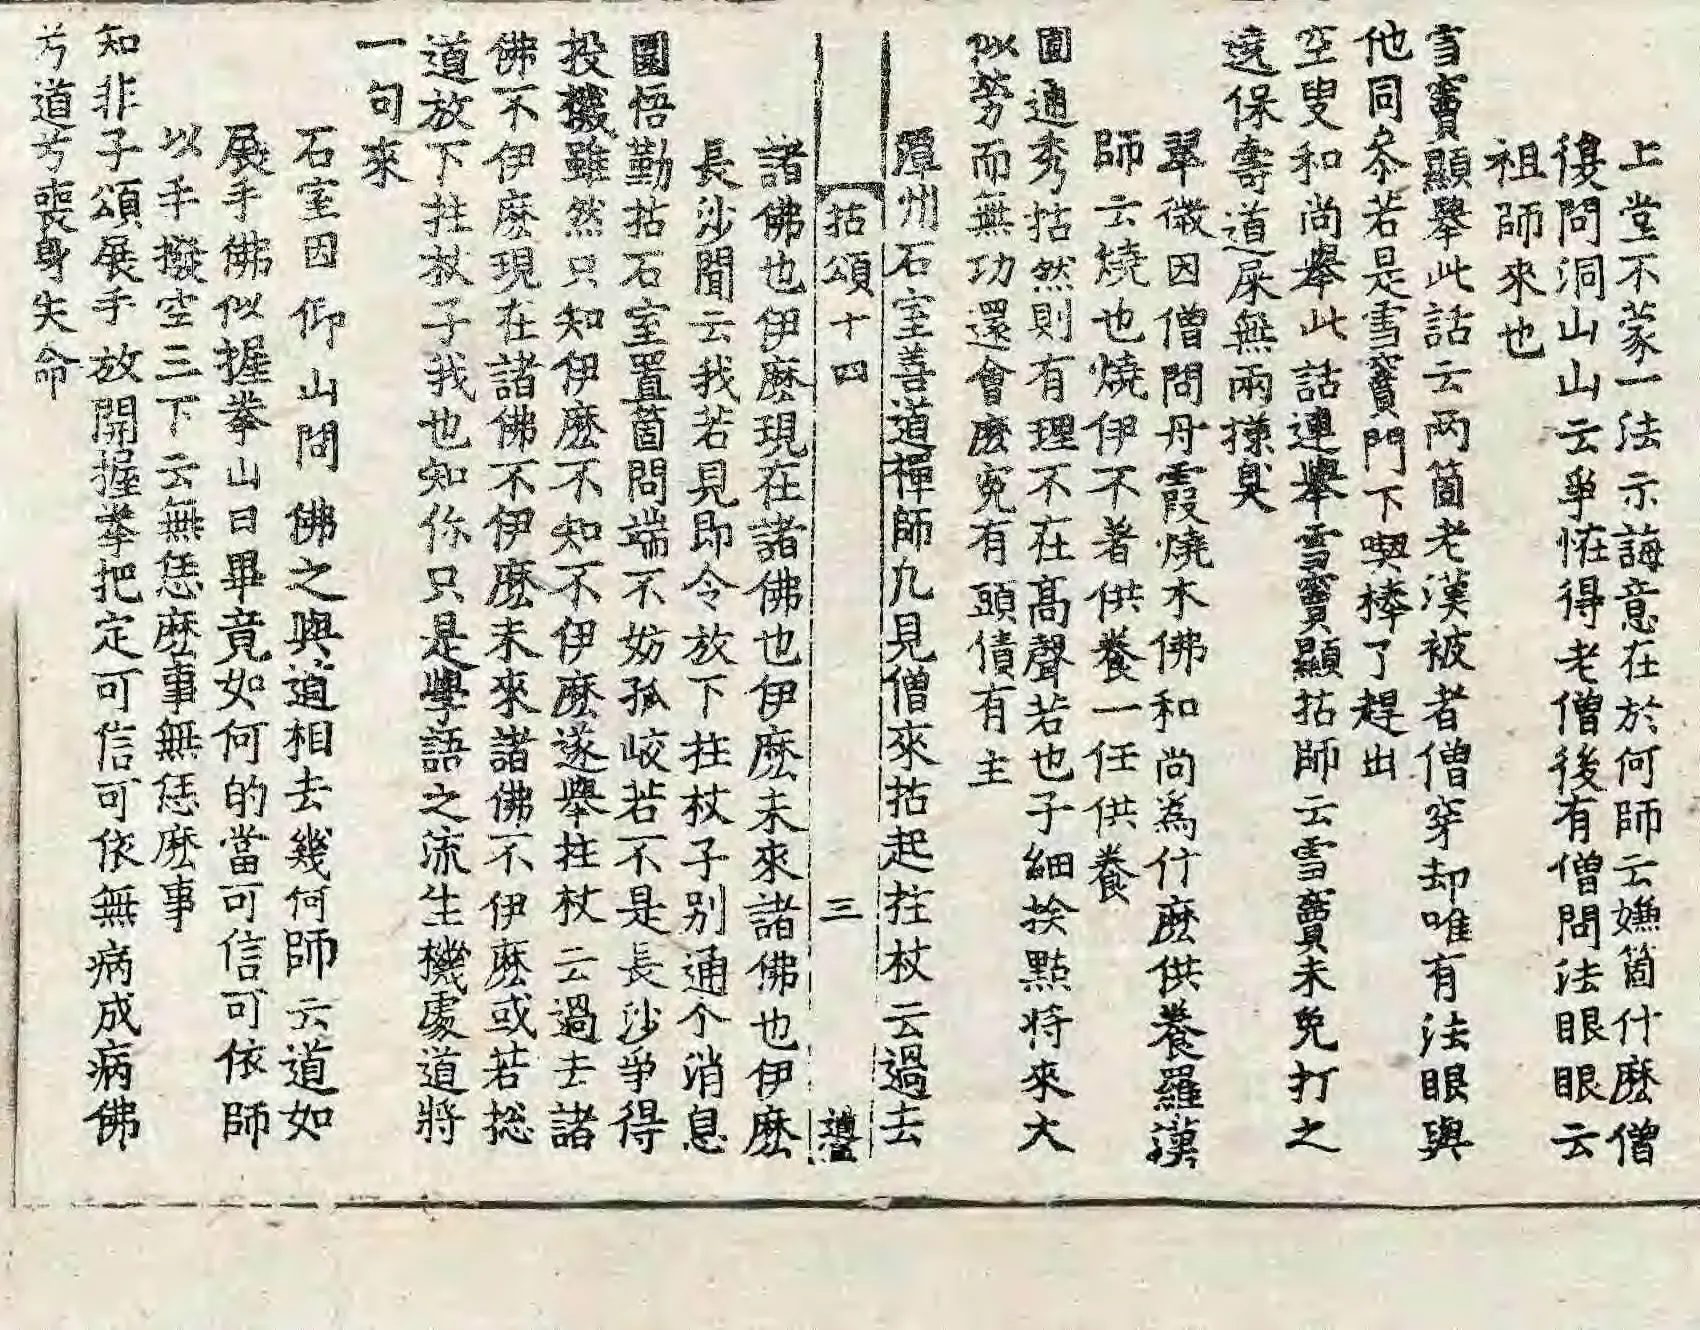 上堂不蒙一法示誨意在於何師云嫌箇什麽僧
復問洞山山云爭恠得老僧後有僧問法眼眼云
祖師來也
雪竇顯舉此話云兩箇老漢被者僧穿却唯有法眼與
他同叅若是雪竇門下喫棒了趕出
空叟和尚舉此話連舉雪竇顯拈師云雪竇未免打之
遶保壽道屎無兩㨾臭
翠微因僧問丹霞燒木佛和尚為什麽供養羅漢
師云燒也燒伊不著供養一任供養
圎通秀拈然則有理不在髙聲若也子細挨點將來大
似勞而無功還會麽寃有頭債有主
潭州石室善道禪師九見僧來拈起拄杖云過去
拈頌十四 三
諸佛也伊麽現在諸佛也伊麽未來諸佛也伊麽
長沙聞云我若見即令放下拄杖子別通个消息
圜悟勤拈石室置箇問端不妨孤峻若不是長沙爭得
投機雖然只知伊麽不知不伊麽遂舉拄杖云過去諸
佛不伊麽現在諸佛不伊麽未來諸佛不伊麽或若捴
道放下拄杖子我也知你只是學語之流生機處道將
一句來
石室因仰山問佛之與道相去幾何師云道如
展手佛似握拳山曰畢竟如何的當可信可依師
以手撥空三下云無恁麽事無恁麽事
知非子頌展手放開握拳把定可信可依無病成病佛
兮道兮喪身失命